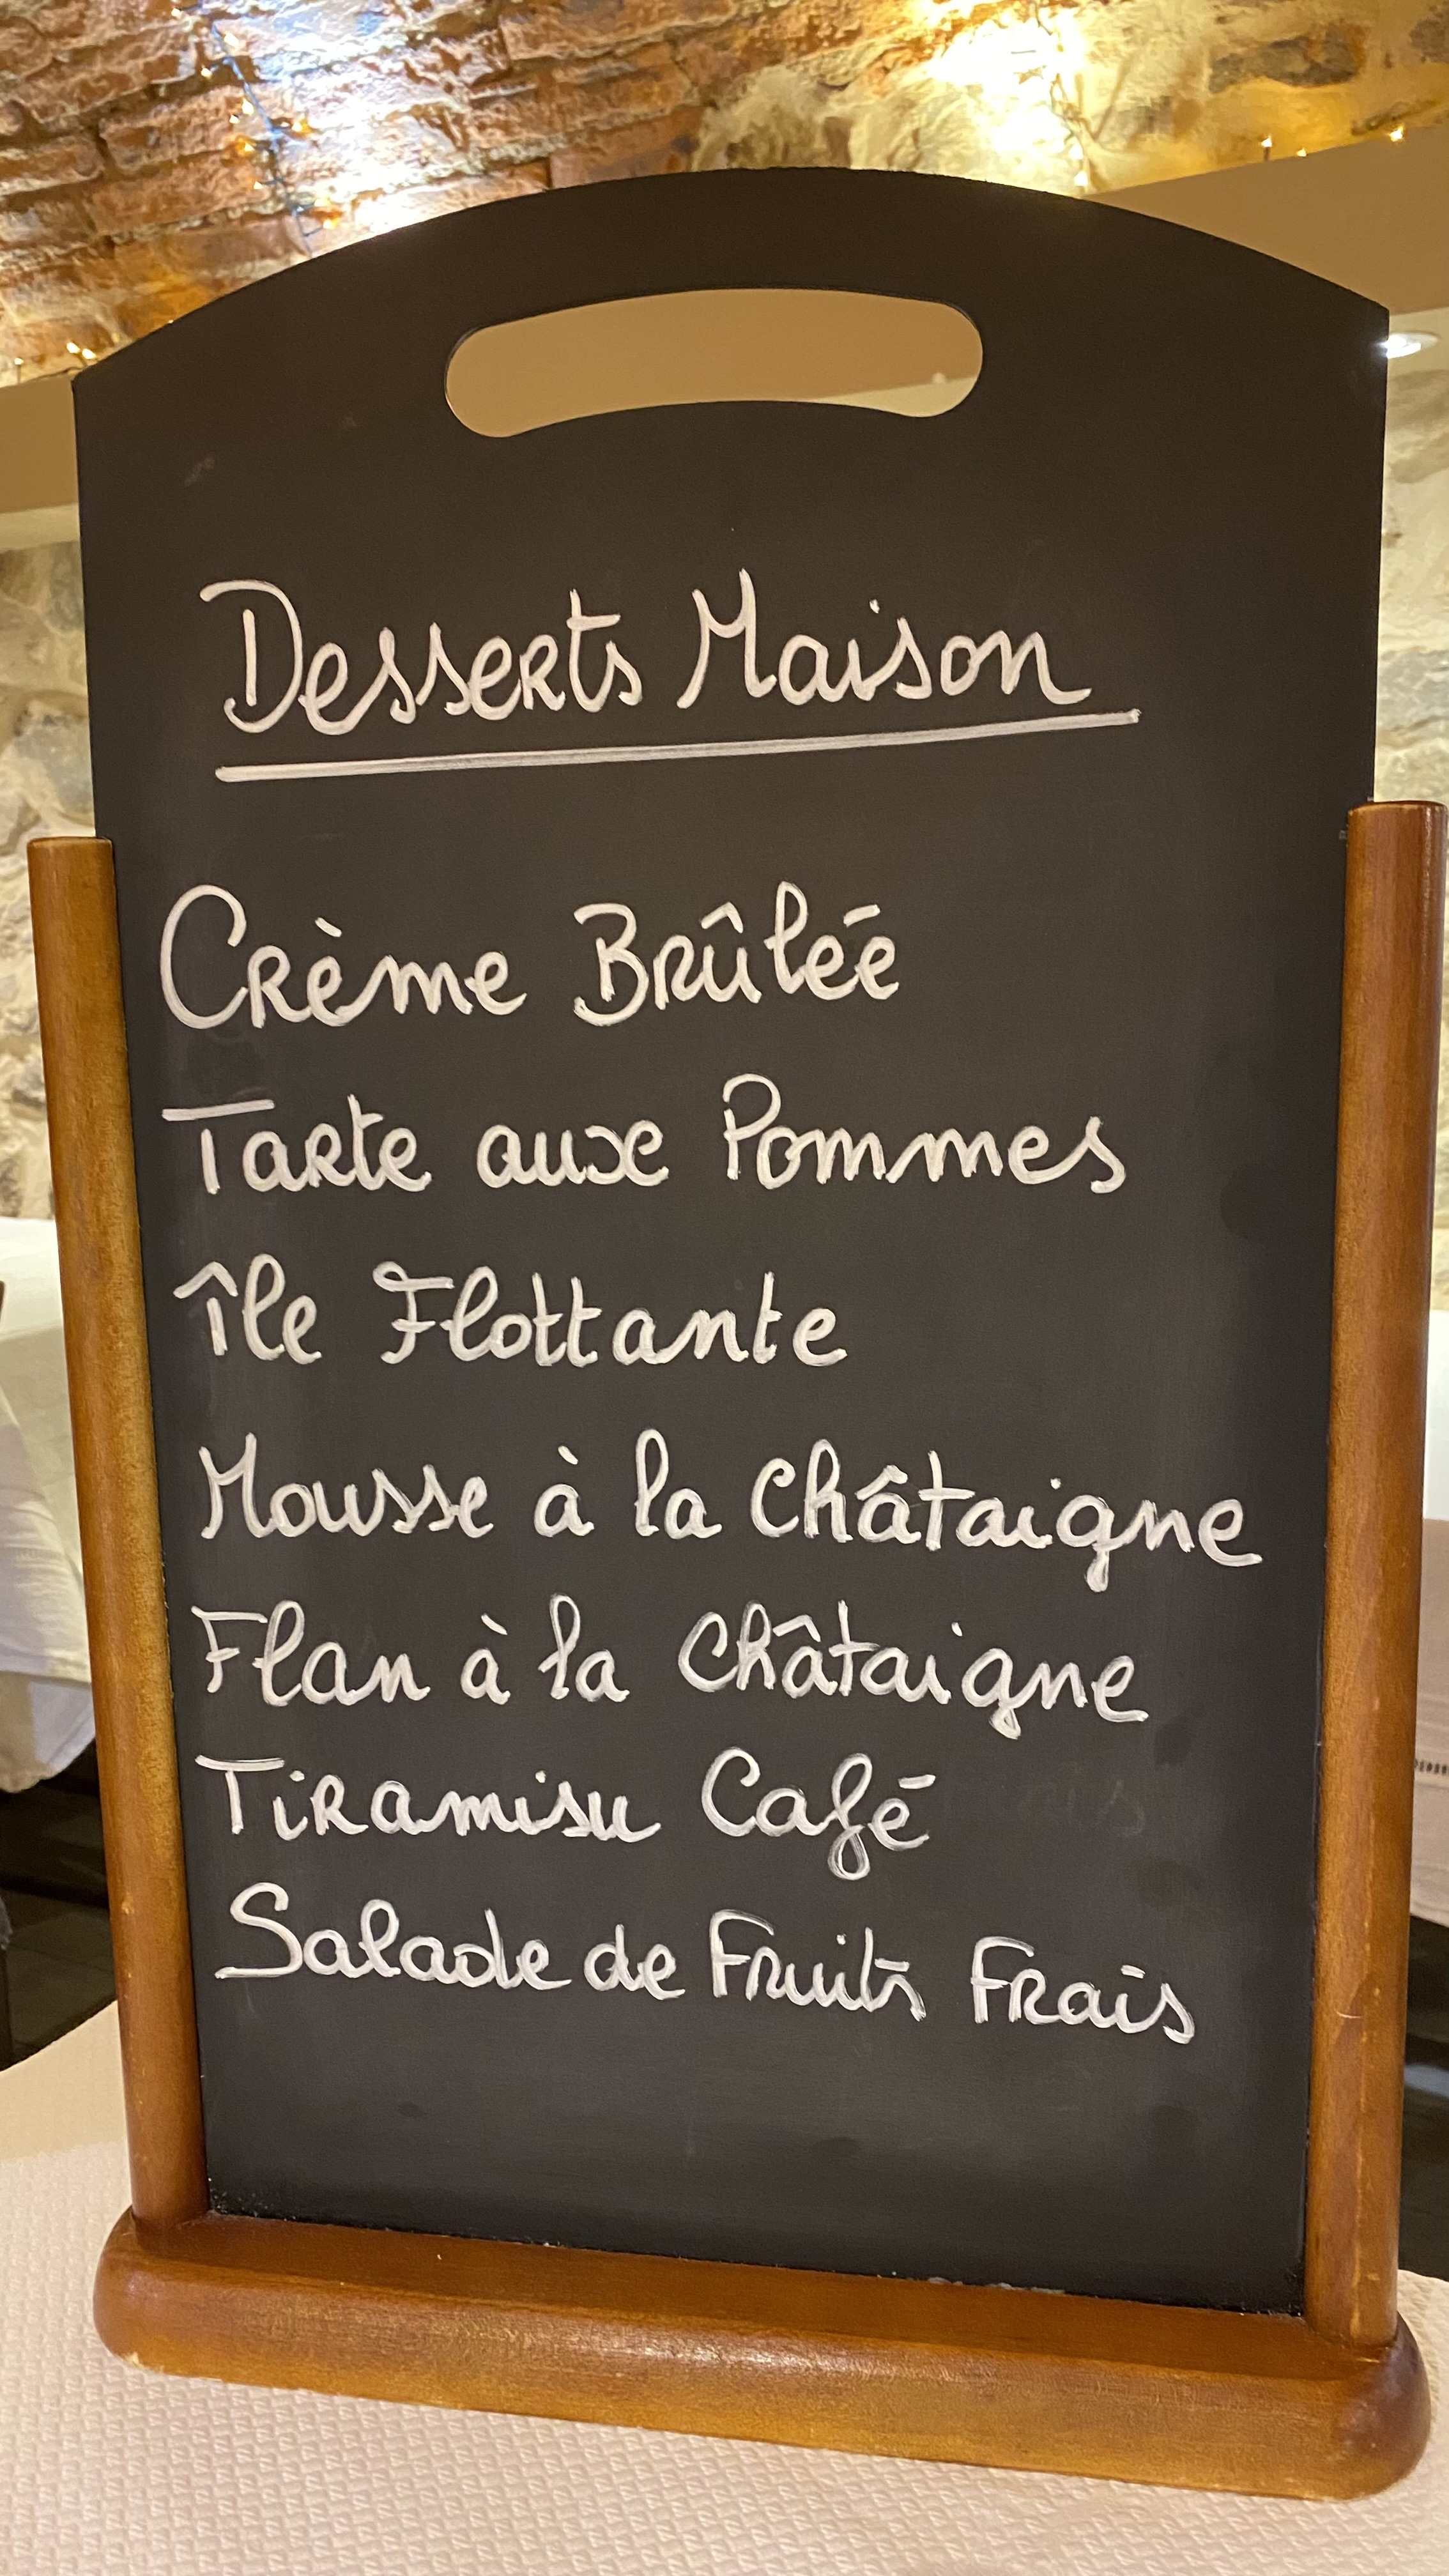 Desserts Maison
Crème Brûlée
Tarte aux Pommes
île Flottante
Mousse à la Châtaigne
Flan à la Châtaigne
Tiramisu Café
Salade de Fruits Frais